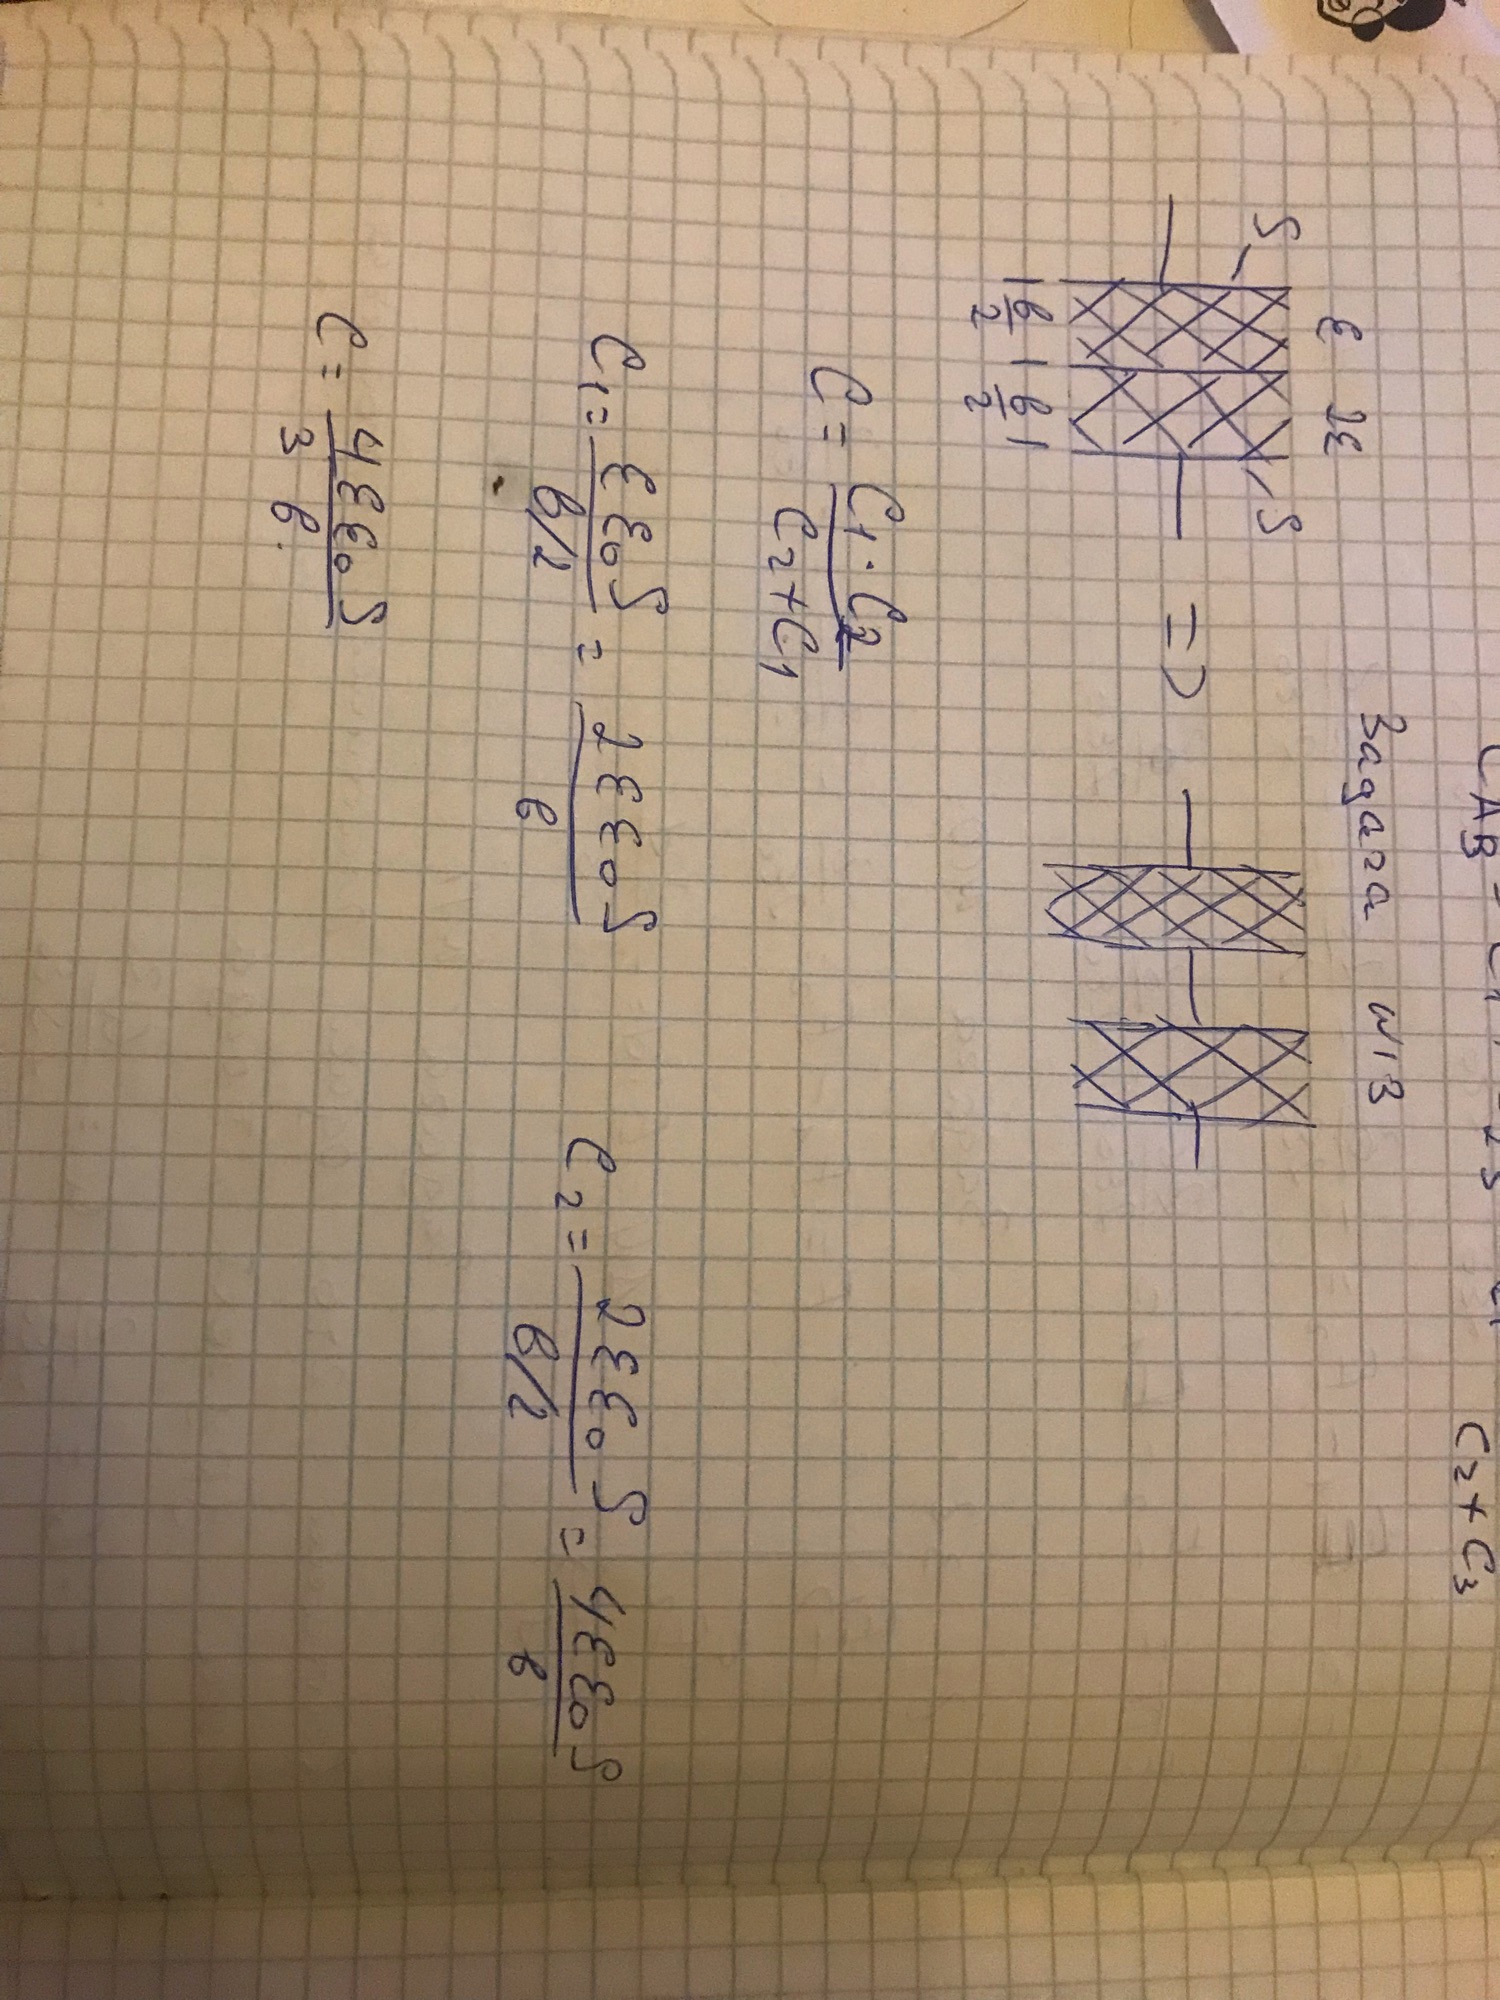 C₂+C₃
Задача N13
ε 2ε
S S
=>
|в/2|в/2|
C = (C₁ · C₂)/(C₂+C₁)
C₁ = (εε₀S)/(в/2) = (2εε₀S)/в C₂ = (2εε₀S)/(в/2) = (4εε₀S)/в
C = (4εε₀S)/(3 в).